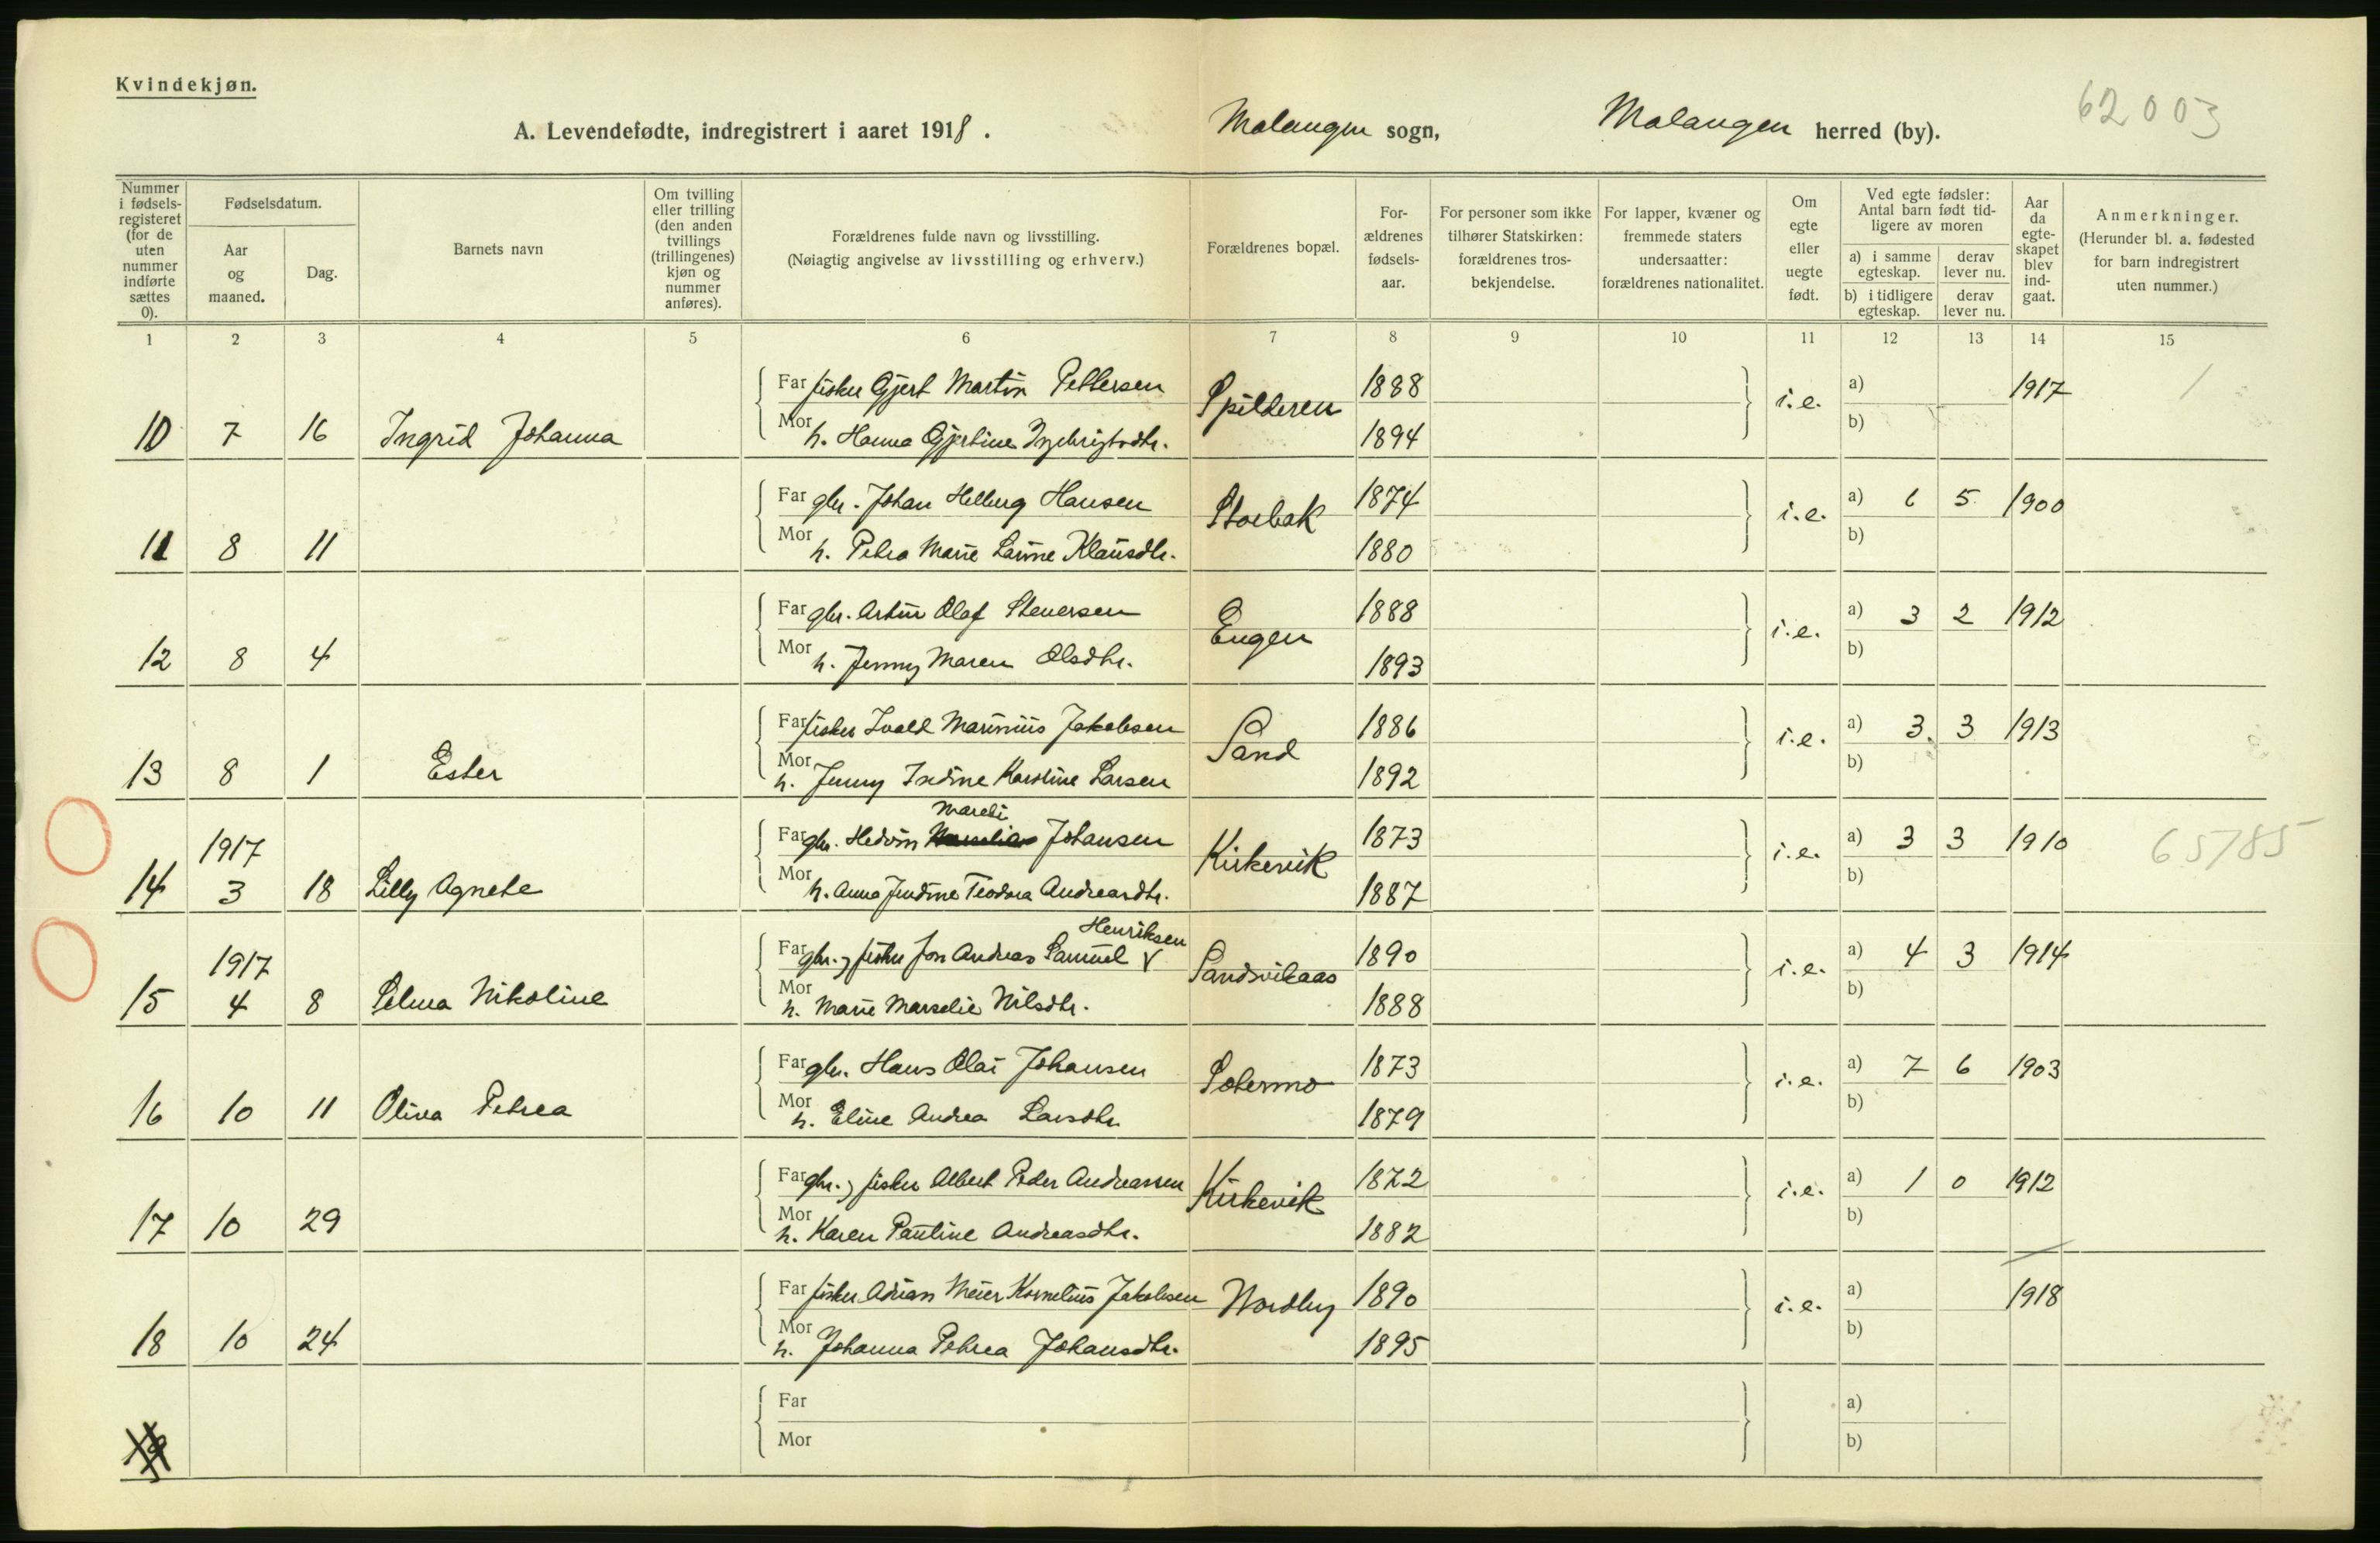 Kvindekjøn.
A. Levendefødte, indregistrert i aaret 1918. Malangen sogn, Malangen herred (by). 62003
Nummer i fødselsregisteret (for de uten nummer indførte sættes 0).
Fødselsdatum.
Aar og maaned.
Dag.
Barnets navn
Om tvilling eller trilling (den anden tvillings (trillingenes) kjøn og nummer anføres).
Forældrenes fulde navn og livsstilling.
(Nøiagtig angivelse av livsstilling og erhverv.)
Forældrenes bopæl.
Forældrenes fødselsaar.
For personer som ikke tilhører Statskirken: forældrenes trosbekjendelse.
For lapper, kvæner og fremmede staters undersaatter: forældrenes nationalitet.
Om egte eller uegte født.
Ved egte fødsler: Antal barn født tidligere av moren
a) i samme egteskap.
derav lever nu.
b) i tidligere egteskap.
derav lever nu.
Aar da egteskapet blev indgaat.
Anmerkninger.
(Herunder bl. a. fødested for barn indregistrert uten nummer.)
1 2 3 4 5 6 7 8 9 10 11 12 13 14 15
Far fisker Gjert Martin Pettersen Spilderen 1888 i.e. a) 1917
10 7 16 Ingrid Johanna Mor h. Hanna Gjertine 1894 b)
Far gbr. Johan Helberg Hansen Storbak 1874 i.e. a) 6 5 1900
11 8 11 Mor h. Petra Marie Larine Klausdtr. 1880 b)
Far gbr. Artur Olaf Stenersen Engen 1888 i.e. a) 3 2 1912
12 8 4 Mor h. Jenny Maren Olsdtr. 1893 b)
Far fisker Ivald Marinius Jakobsen Sand 1886 i.e. a) 3 3 1913
13 8 1 Ester Mor h. Jenny Indine Karoline Larsen 1892 b)
Mareli
1917 Far gbr. Hedvin Johansen Kirkevik 1873 i.e. a) 3 3 1910 65785
14 3 18 Lilly Agnete Mor h. Anna Jendine Teodora Andreasdtr. 1887 b)
Henriksen
1917 Far gbr. & fisker Jon Andreas Samuel V Sandvikaas 1890 i.e. a) 4 3 1914
15 4 8 Selma Nikoline Mor h. Marie Marselie Nilsdtr. 1888 b)
Far gbr. Hans Olai Johansen Solermo 1873 i.e. a) 7 6 1903
16 10 11 Oliva Petrea Mor h. Eline Andrea Larsdtr. 1879 b)
Far gbr. & fisker Albert Peder Andreassen Kirkevik 1872 i.e. a) 1 0 1912
17 10 29 Mor h. Karen Pauline Andreasdtr. 1882 b)
Far fisker Adrian Meier Kornelius Jakobsen Nordby 1890 i.e. a) 1918
18 10 24 Mor h. Johanna Petrea Johansdtr. 1895 b)
Far a)
Mor b)